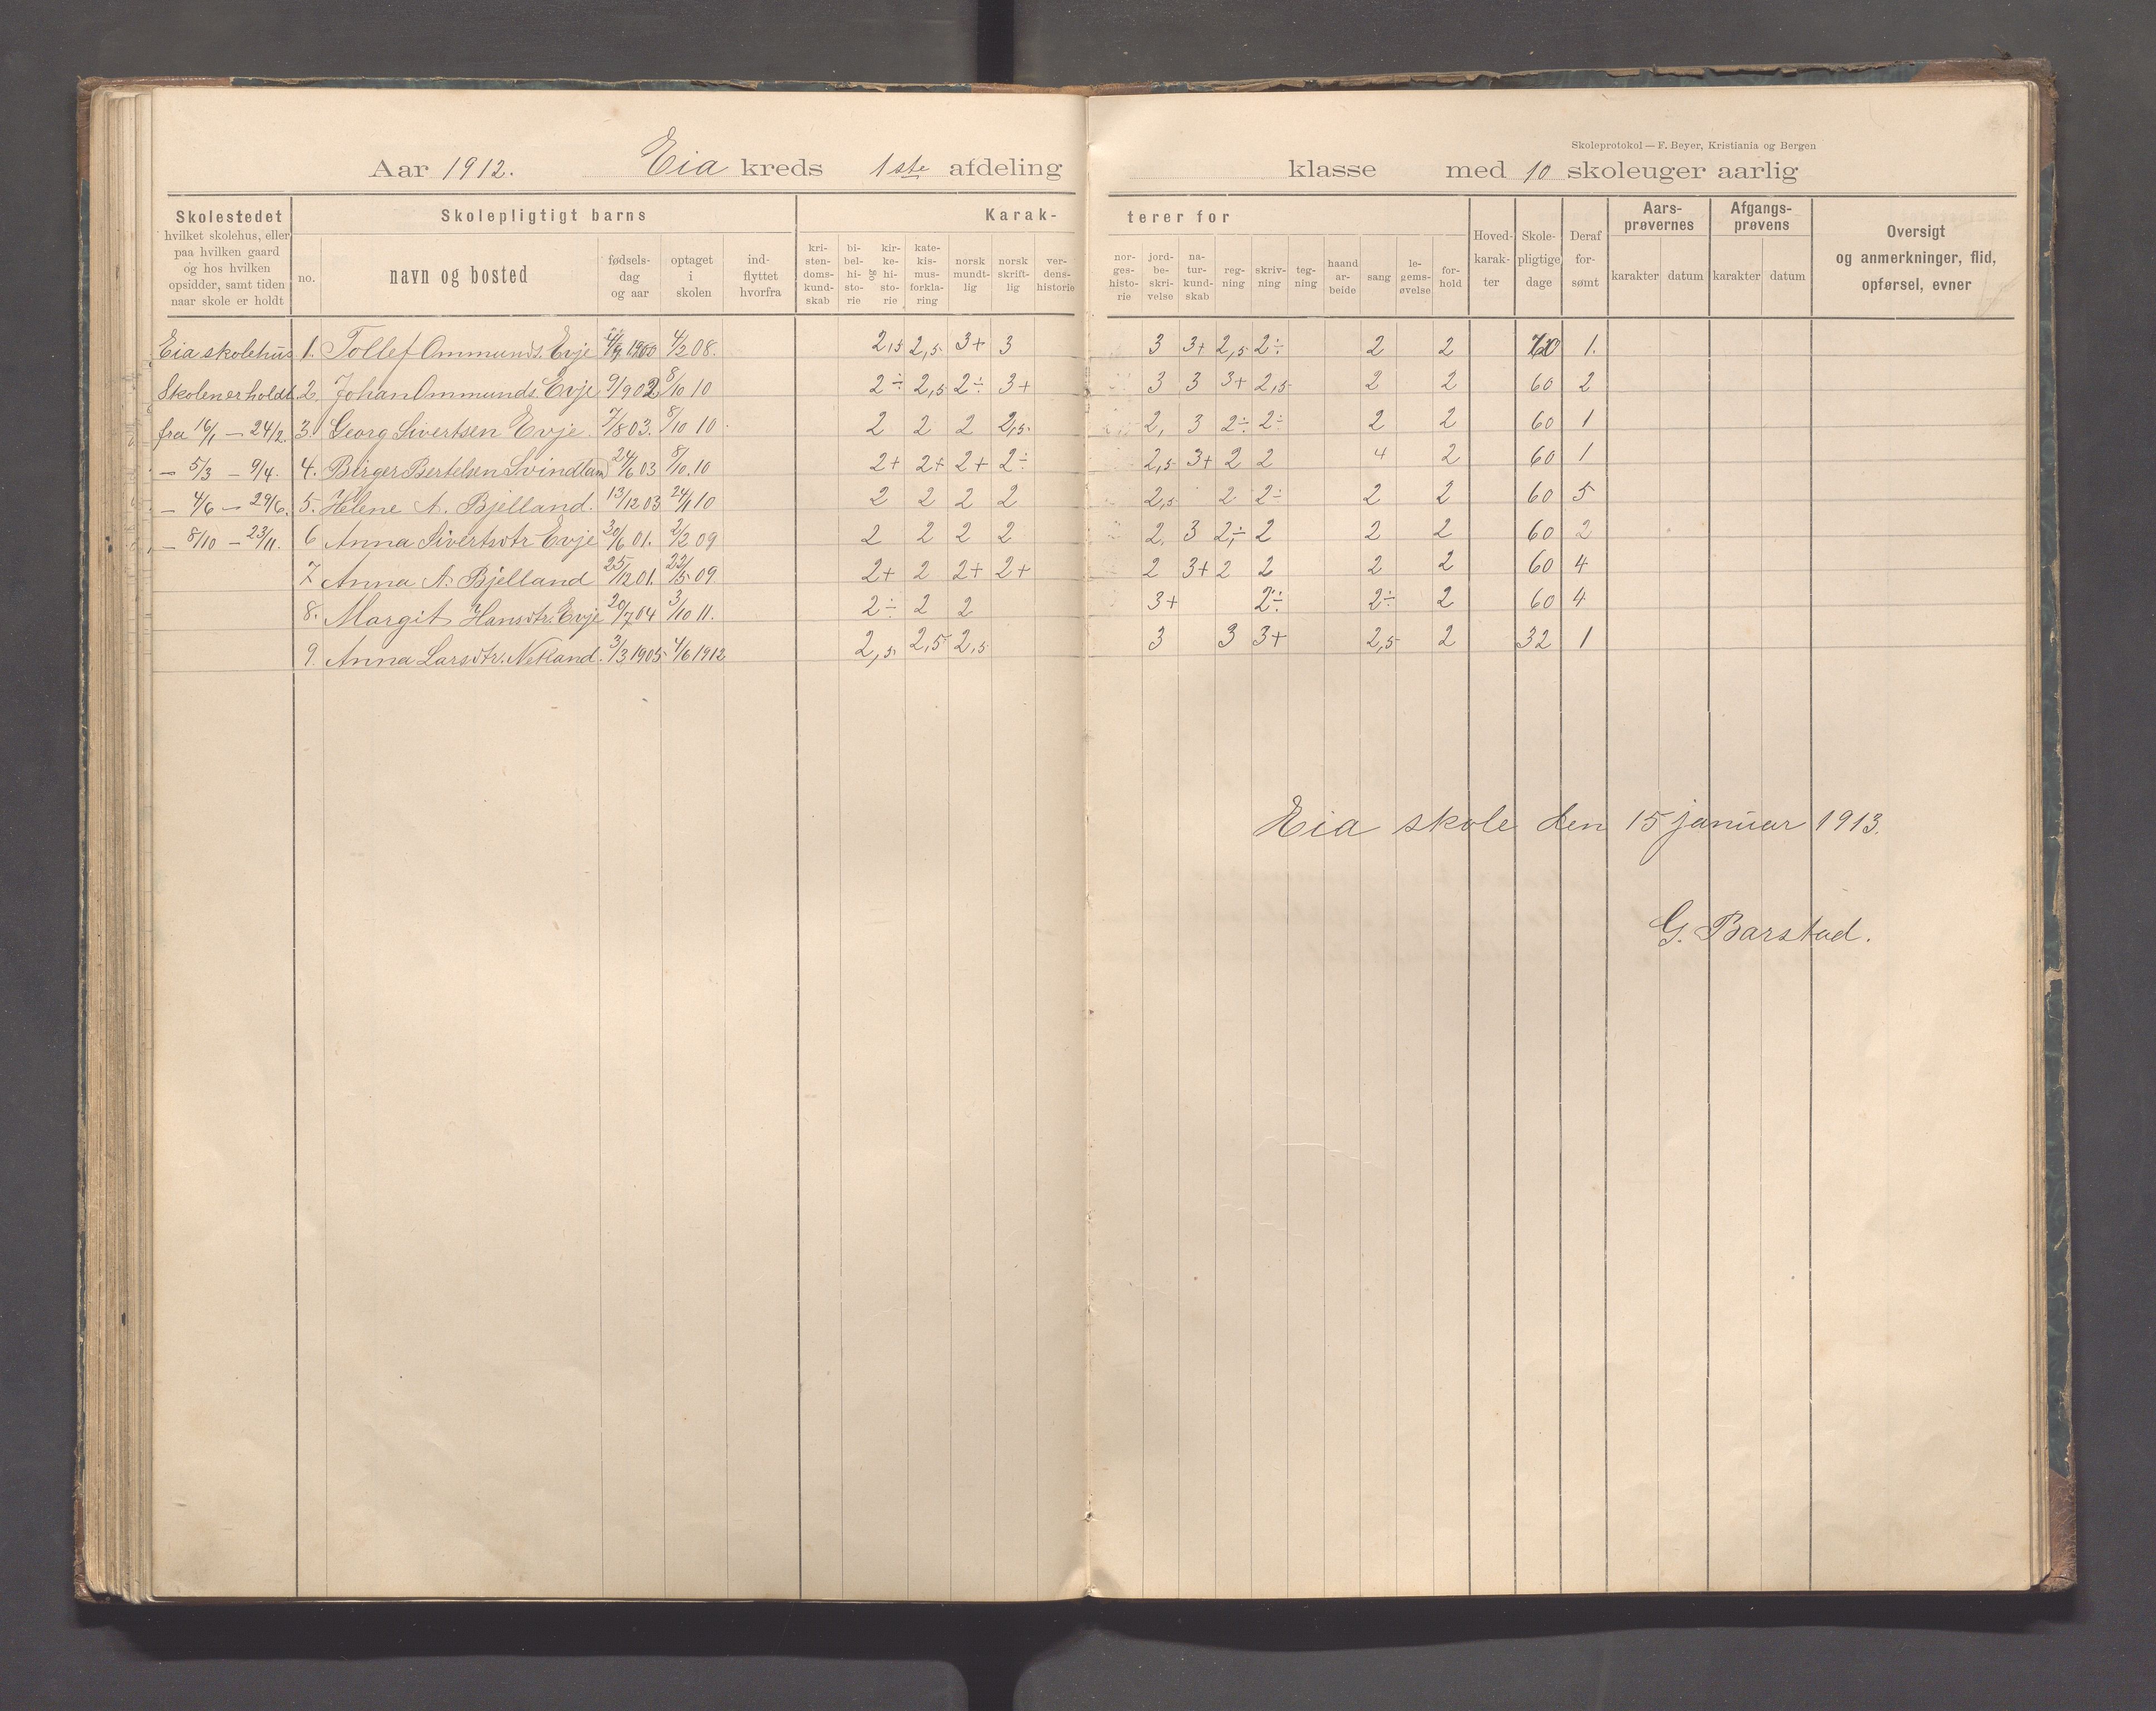 Skoleprotokol — F. Beyer, Kristiania og Bergen
Aar 1912. Eia kreds 1ste afdeling klasse med 10 skoleuger aarlig
Skolestedet hvilket skolehus, eller paa hvilken gaard og hos hvilken opsidder, samt tiden naar skole er holdt
Skolepligtigt barns
no. navn og bosted fødsels-dag og aar optaget i skolen ind-flyttet hvorfra
Karak-terer for
kri-sten-doms-kund-skab bi-bel-hi-sto-rie og kir-ke-hi-sto-rie kate-kis-mus-forkla-ring norsk mundt-lig norsk skrift-lig ver-dens-historie nor-ges-histo-rie jord-be-skri-velse na-tur-kund-skab reg-ning skriv-ning teg-ning haand ar-beide sang le-gems-øvelse for-hold
Hoved-karak-ter Skole-pligtige dage Deraf for-sømt
Aars-prøvernes karakter datum
Afgangs-prøvens karakter datum
Oversigt og anmerkninger, flid, opførsel, evner
Eia skolehus 1. Tollef Ommunds. Evje 1900 4/2 08. 2,5 2,5 3+ 3 3 3+ 2,5 2÷ 2 2 60 1.
Skolen er holdt 2. Johan Ommunds. Evje 9/9 02 8/10 10 2÷ 2,5 2÷ 3+ 3 3 3+ 2,5 2 2 60 2
fra 16/1 — 24/2. 3. Georg Sivertsen Evje. 7/8 03. 8/10 10. 2 2 2 2,5. 2, 3 2÷ 2÷ 2 2 60 1
— 5/3 — 9/4. 4. Birger Bertelsen Svindland 24/6 03 8/10. 10 2+ 2+ 2+ 2÷ 2,5 3+ 2 2 4 2 60 1
— 4/6 — 29/6. 5. Helene A. Bjelland. 13/12 03 24/1 10 2 2 2 2 2,5 2 2÷ 2 2 60 5
— 8/10 — 23/11. 6 Anna Sivertsdtr Evje 30/6 01. 2/2 09 2 2 2 2 2. 3 2,÷ 2 2 2 60 2
7 Anna A. Bjelland 25/12 01. 22/5 09. 2+ 2 2+ 2+ 2 3+ 2 2 2 2 60 4
8. Margit Hansdtr. Evje 20/7 04 3/10 11. 2÷ 2 2 3+ 2÷ 2÷ 2 60 4
9. Anna Larsdtr. 3/3 1905 4/6 1912 2,5. 2,5 2,5 3 3 3+ 2,5 2 32 1
Eia skole den 15 januar 1913.
G. Barstad.